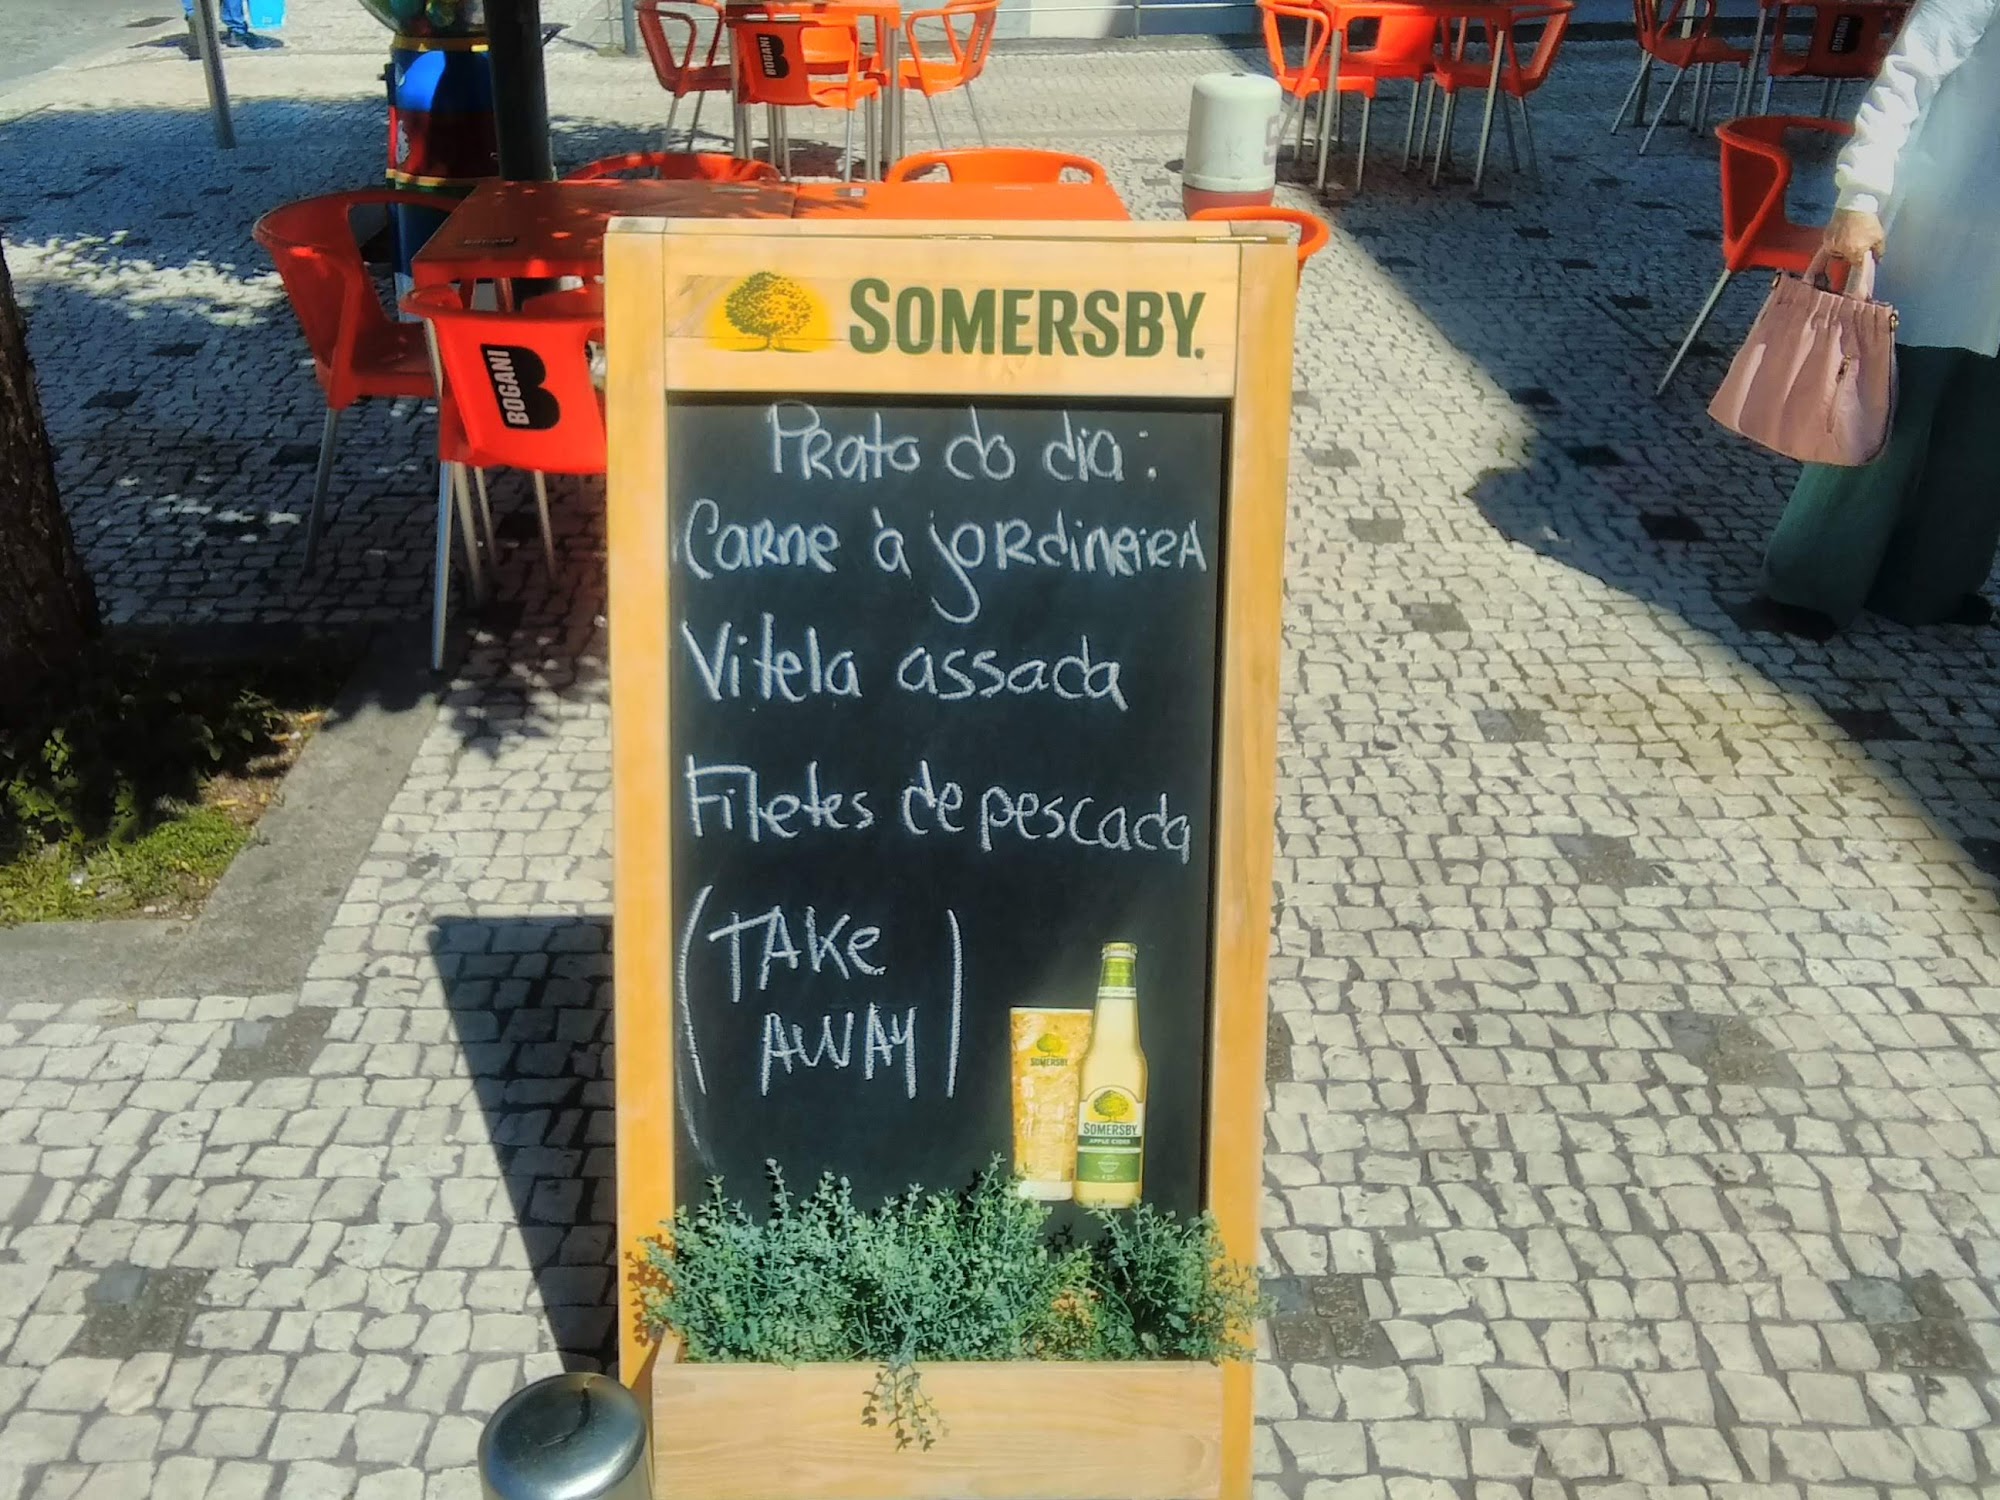 BOGANI
SOMERSBY.
BOGANI
Prato do dia:
Carne à jordineira
Vitela assada
Filetes de pescada
(TAKE
AWAY)
SOMERSBY
SOMERSBY
APPLE CIDER